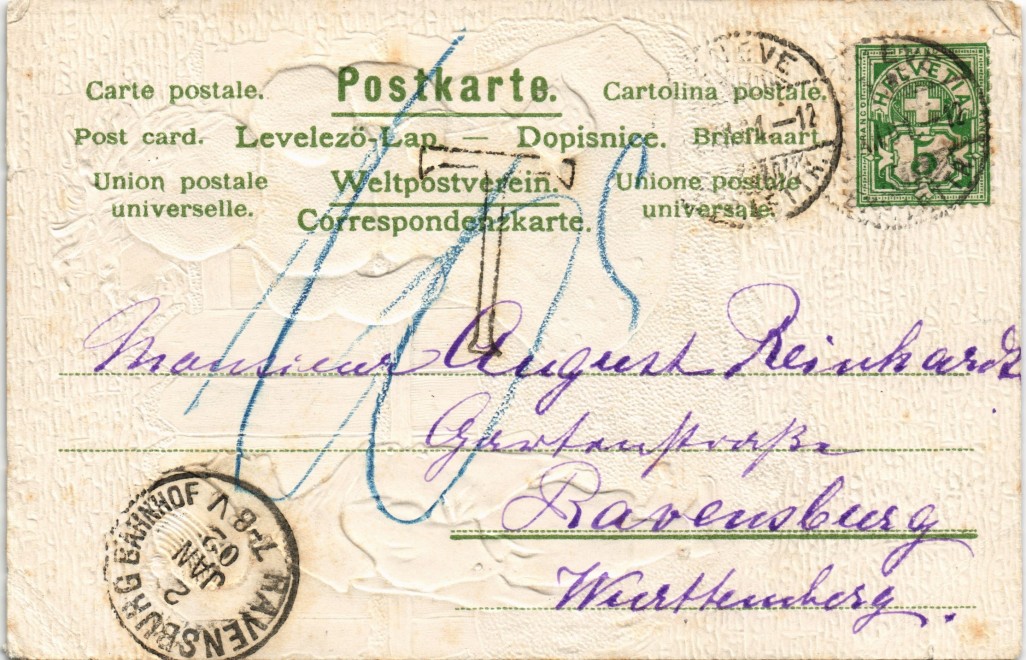 Postkarte.
Carte postale. Cartolina postale.
Post card. Levelező-Lap. — Dopisnice. Briefkaart
Union postale Weltpostverein. Unione postale
universelle. universale.
Correspondenzkarte.
HELVETIA
5
FRANCO
T
Monsieur August Reinhardt
Gartenstraße
Ravensburg
Württemberg.
RAVENSBURG BAHNHOF
2
JAN
05
7-8 V